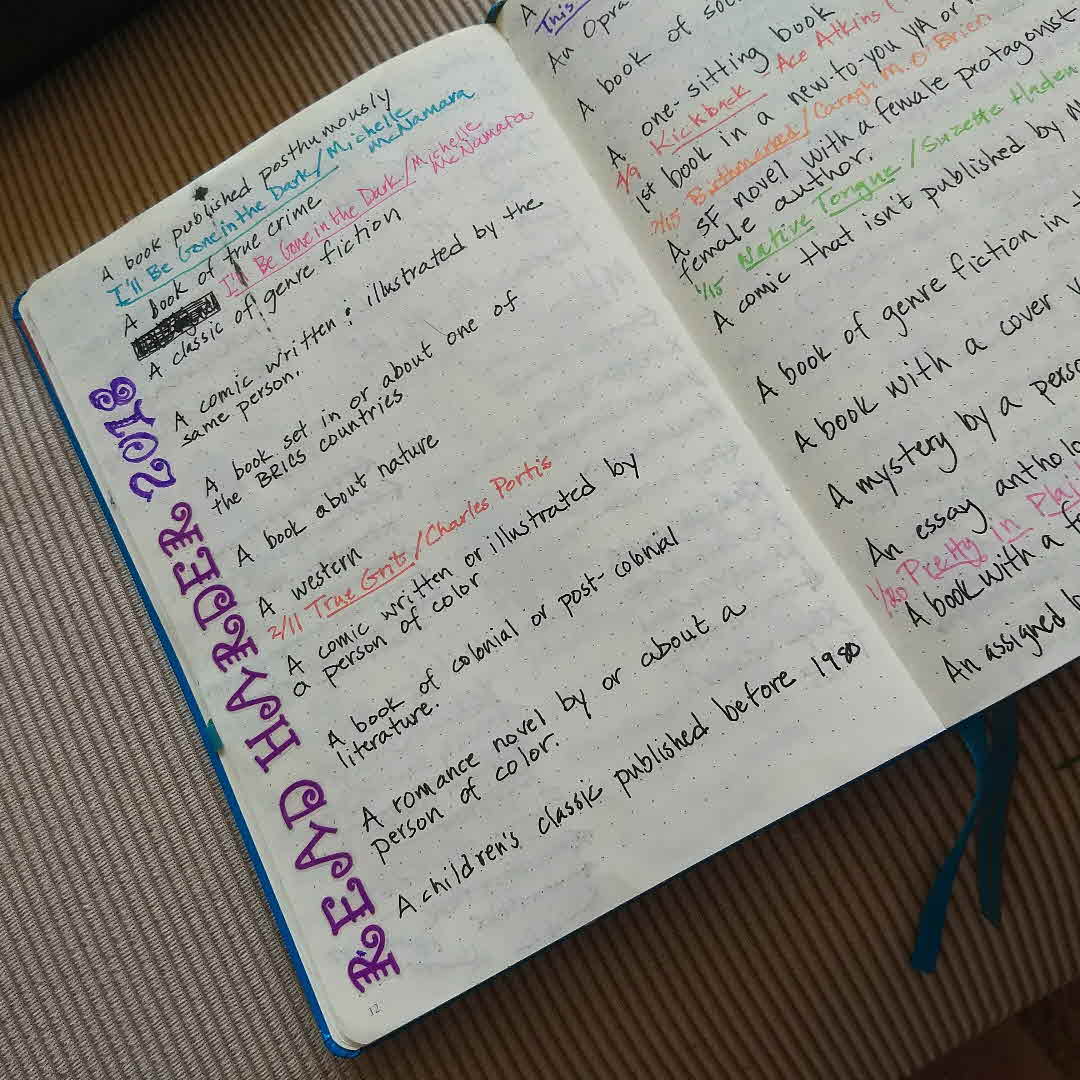 READ HARDER 2018
A book published posthumously
I'll Be Gone in the Dark / Michelle
McNamara
A book of true crime
I'll Be Gone in the Dark / Michelle
McNamara
A classic of genre fiction
A comic written & illustrated by the
same person.
A book set in or about one of
the BRICS countries
A book about nature
A western
2/11 True Grit / Charles Portis
A comic written or illustrated by
a person of color
A book of colonial or post-colonial
literature.
A romance novel by or about a
person of color.
A children's classic published before 1980
12
A
This
An Opra
A book of soc
A one-sitting book
Kickback - Ace Atkins
1st book in a new-to-you YA or
Birthmarked / Caragh M. O'Brien
A SF novel with a female protagonist
female author.
1/15 Native Tongue / Suzette Haden
A comic that isn't published by M
A book of genre fiction in t
A book with a cover
A mystery by a perso
An essay antholo
1/20 Pretty in Plai
A book with a f
An assigned b